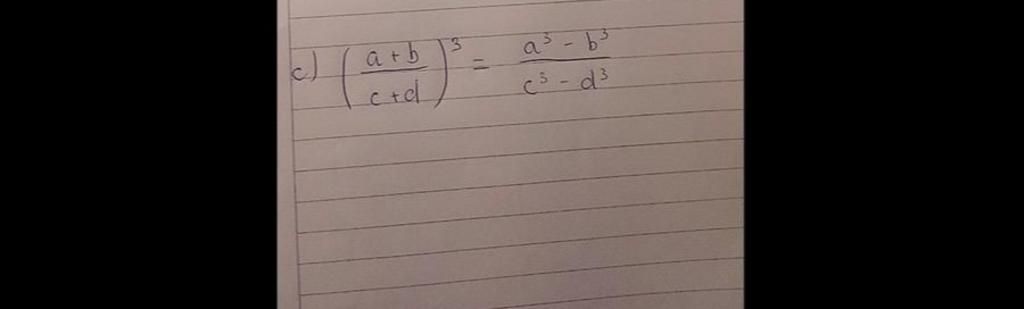 c) ( (a+b)/(c+d) )³ = (a³ - b³)/(c³ - d³)